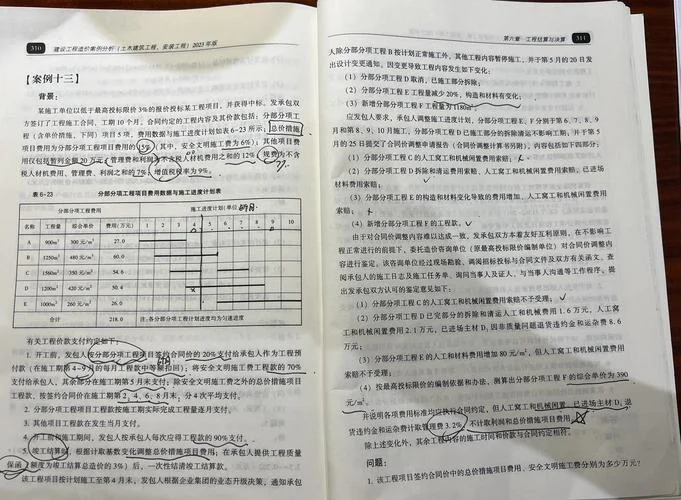 310 建设工程造价案例分析（土木建筑工程、安装工程）2023年版
【案例十三】
背景：
某施工单位以低于最高投标限价3%的报价投标某工程项目，并获得中标。发承包双
方签订了施工合同，工期10个月，合同约定的工程内容及其价款包括：分部分项工
程（含单价措施，下同）项目5项，费用数据与施工进度计划如表6-23所示；总价措施
项目费用为分部分项工程项目费用的15%（其中，安全文明施工费为6%）；其他项目费
用仅包括暂列金额20万元（管理费和利润为不含税人材机费用之和的12%；规费为不含
税人材机费用、管理费、利润之和的7%；增值税税率为9%。
表6-23 分部分项工程项目费用数据与施工进度计划表
分部分项工程费用 施工进度计划（单位：
名称 工程量 综合单价 费用（万元） 1 2 3 4 5 6 7 8 9 10
A 900m³ 300元/m³ 27.0
B 1250m³ 480元/m³ 60.0
C 1560m² 350元/m² 54.6
D 1200m² 420元/m² 50.4
E 1000m² 260元/m² 26.0
合计 218.0 注：各分部分项工程计划进度均为匀速进度
有关工程价款支付约定如下：
1. 开工前，发包人按分部分项工程项目签约合同价的20%支付给承包人作为工程预
付款（在施工期第4～9月的每月工程款中等额扣回）；将安全文明施工费工程款的70%
支付给承包人，其余部分在施工期第5月末支付；除安全文明施工费之外的总价措施项目
工程款，按签约合同价在施工期第2、4、6、8月末，分4次平均支付。
2. 分部分项工程项目工程款按施工期实际完成工程量逐月支付。
3. 其他项目工程款在发生当月支付。
4. 开工前和施工期间，发包人按承包人每次应得工程款的90%支付。
5. 竣工结算时，根据计取基数变化调整总价措施项目费用；在承包人提供工程质量
保函（额度为竣工结算总造价的3%）后，一次性结清竣工结算款。
该工程项目按计划施工至第4月末，发包人根据企业集团的业态升级决策，通知承包
第六章 工程结算与决算 311
人除分部分项工程B按计划正常施工外，其他工程内容暂停施工，并于第5月的20日发
出设计变更通知。因变更导致工程内容发生如下变化：
（1）分部分项工程D取消，已施工部分拆除；
（2）分部分项工程E工程量减少20%，构造和材料有变化；
（3）新增分部分项工程F工程量为1180m²
应发包人要求，承包人调整施工进度计划，分部分项工程C、E、F分别于第6、7、8、9
月和第8、9、10月施工，分部分项工程D已施工部分的拆除清运不影响工期，并于第5
月的25日提交了合同价调整申请报告（合同价调整计算书另附），内容包括如下四部分：
（1）分部分项工程C的人工窝工和机械闲置费用索赔；
（2）分部分项工程D拆除和清运费用索赔，人工窝工和机械闲置费用索赔，已进场
材料费用索赔；
（3）分部分项工程E的构造和材料变化导致的费用增加，人工窝工和机械闲置费用
索赔；
（4）新增分部分项工程F的工程款。
由于对合同价调整内容难以达成一致，发承包双方本着友好互利原则，在不影响工
程正常进行的前提下，委托造价咨询单位（原最高投标限价编制单位）对合同价调整内
容进行鉴定。该咨询单位经过现场勘验，调阅招标投标与合同文件及双方有关函文，查
阅承包人的施工日志及施工任务单，询问当事人及证人，与当事人沟通等工作程序，提
出发承包双方认可的鉴定意见如下：
（1）分部分项工程C的人工窝工和机械闲置费用索赔不予受理；
（2）分部分项工程D已完成部分的拆除和清运人工和机械费用1.6万元，人工窝
工和机械闲置费用2.1万元，已进场主材D，因非质量问题退货违约金和运杂费8.6
万元；
（3）分部分项工程E的人工和材料费用增加80元/m²，但人工窝工和机械闲置费用
索赔不于受理；
（4）按最高投标限价的编制依据和办法，测算出分部分项工程F的综合单价为390
元/m²。
并说明各项费用标准均应执行合同约定，但人工窝工和机械闲置，已进场主材D，退
货违约金和运杂费计取管理费3.2%，不计取利润和总价措施项目费用。
除上述变化外，其余工程内容的施工时间和价款与合同约定相符。
问题：
1. 该工程项目签约合同价中的总价措施项目费用、安全文明施工费分别为多少万元？